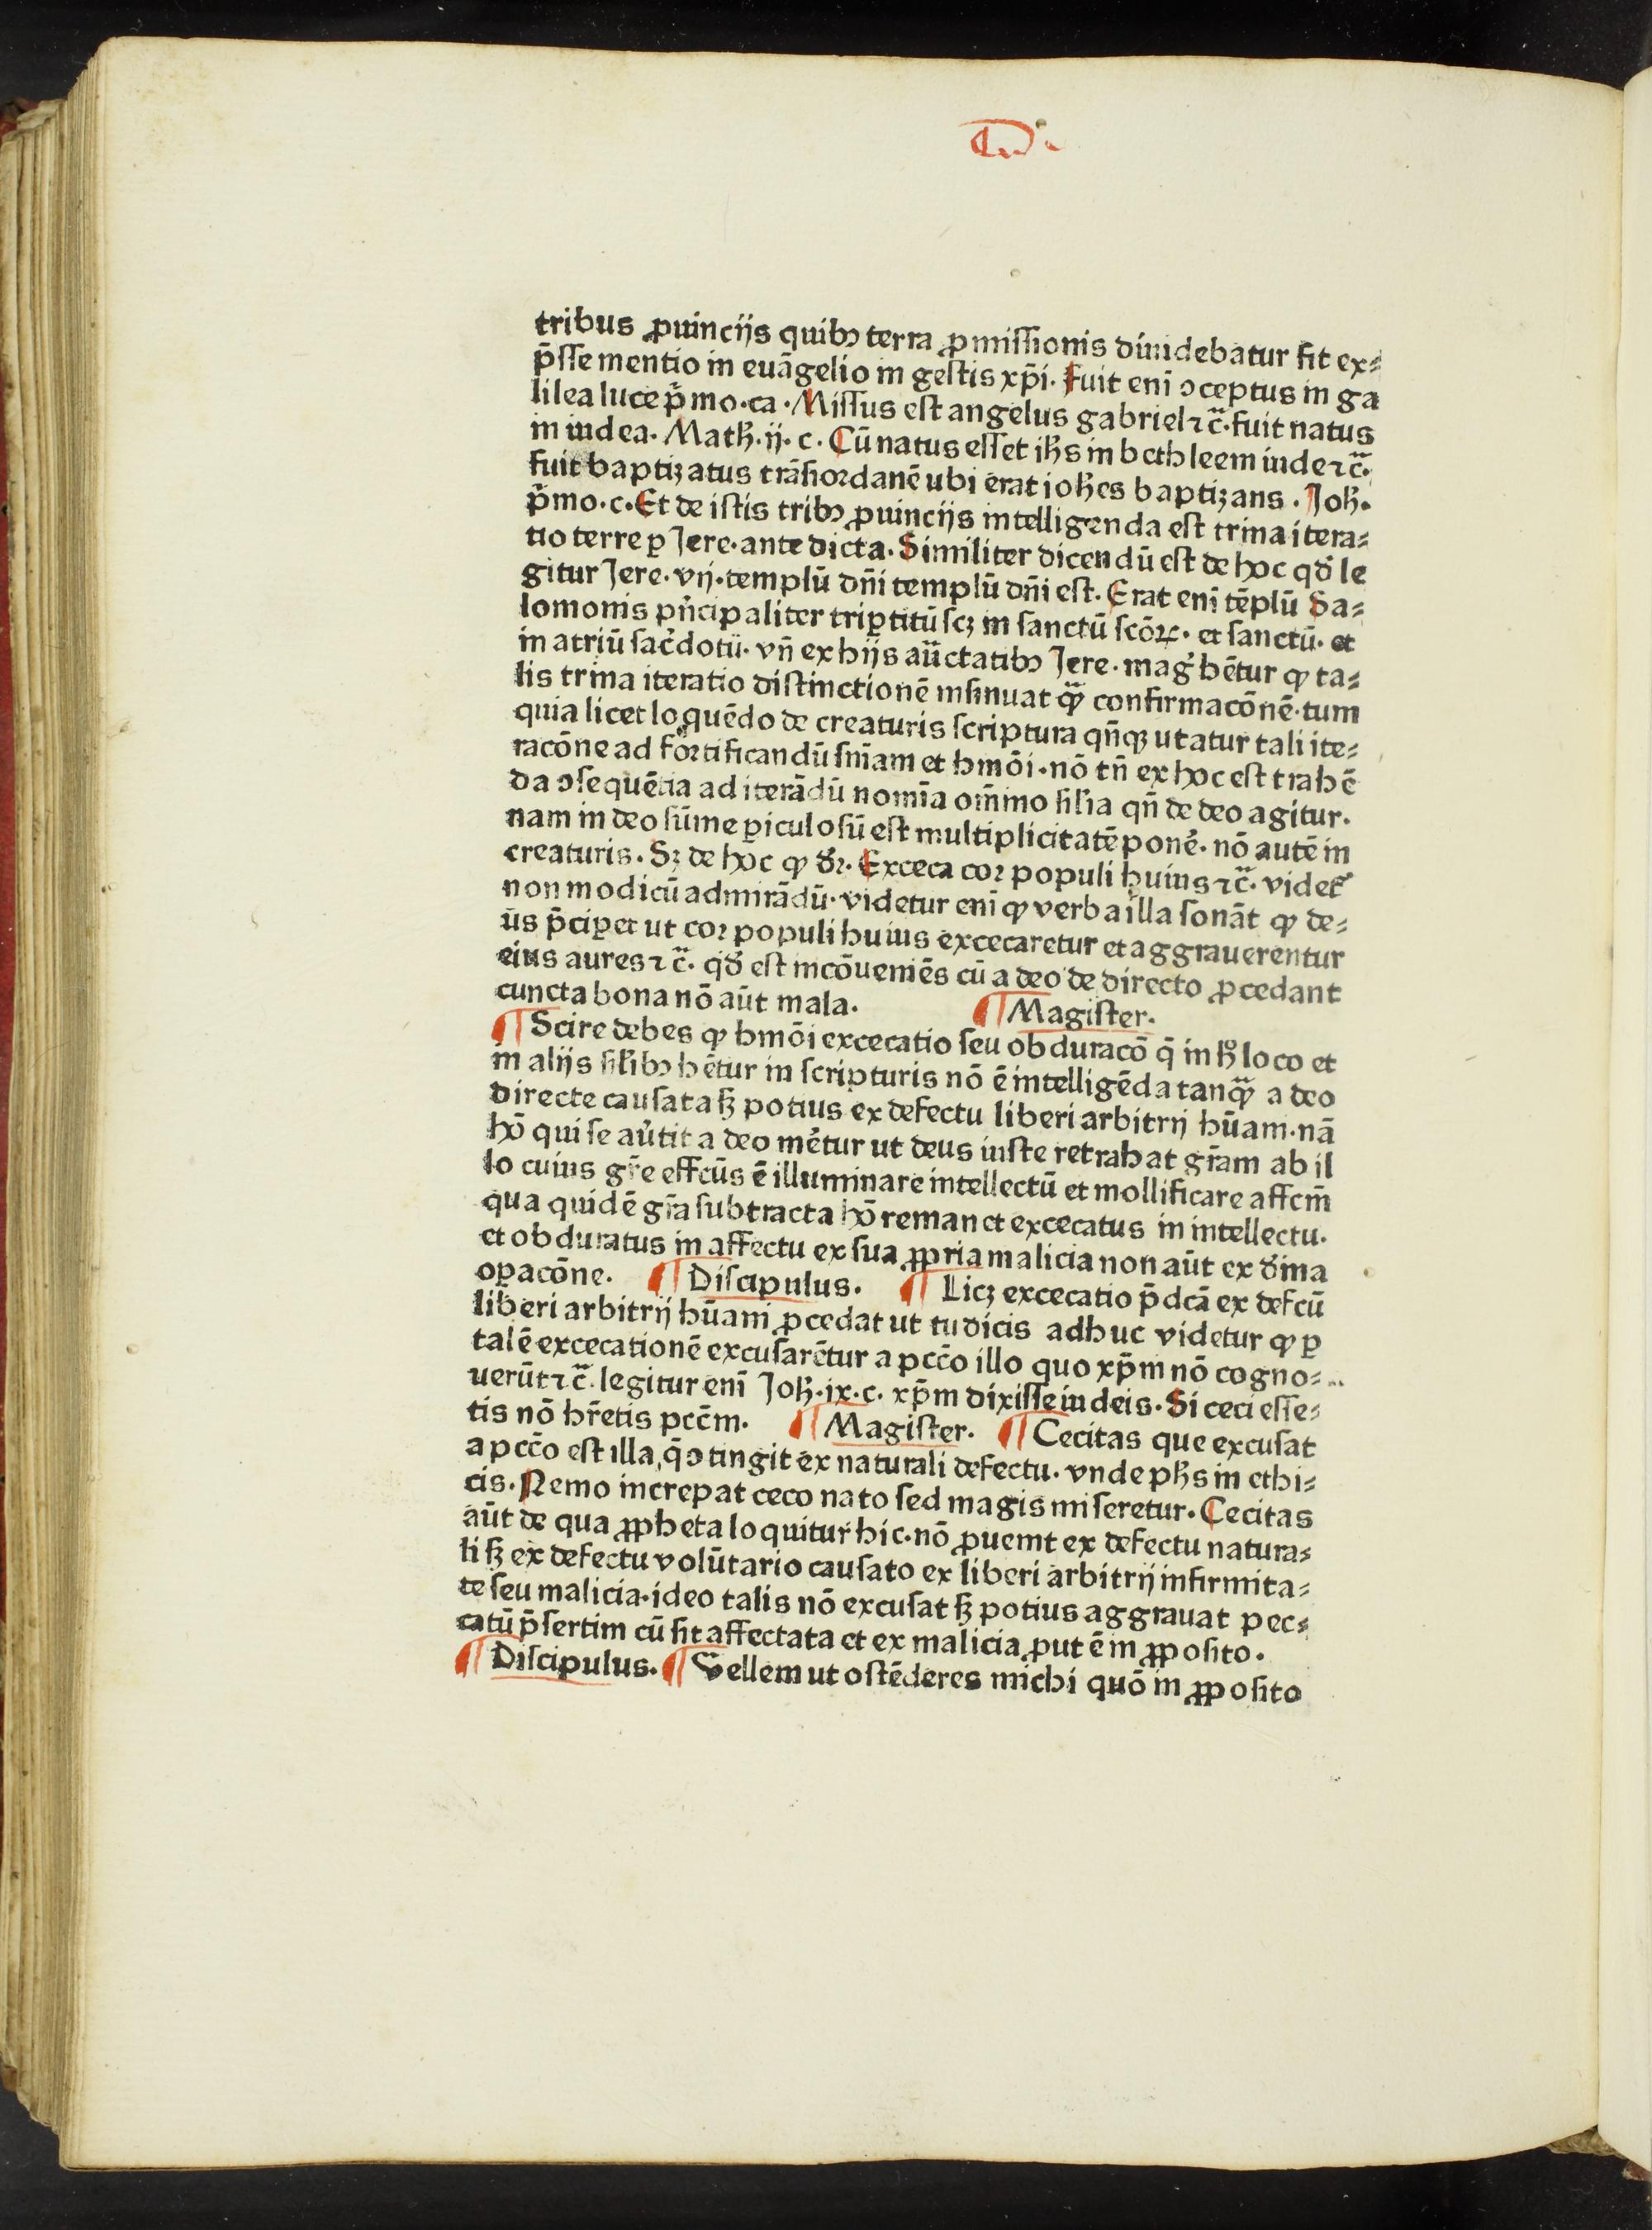 tribus ꝓuincijs quibꝰ terra ꝓmissionis diuidebatur fit ex⸗
p̄sse mentio in euāgelio in gestis xp̄i. Fuit enī ↄceptus in ga
lilea luce p̄mo.ca. Missus est angelus gabriel ⁊c̄. fuit natus
in iudea. Matħ.ij.c. Cū natus esset iħs in bethleem iude ⁊c̄.
fuit baptizatus trāsiordanē ubi erat ioħes baptizans. Joħ.
p̄mo.c. Et de istis tribꝰ ꝓuincijs intelligenda est trina itera⸗
tio terre ꝑ Jere. ante dicta. Similiter dicendū est de hoc qđ le
gitur Jere. vij. templū dn̄i templū dn̄i est. Erat enī tēplū Sa⸗
lomonis pn̄cipaliter triꝑtitū scꝫ in sanctū scōꝝ. et sanctū. et
in atriū sac̄dotū. vn̄ ex hijs aūctatibꝰ Jere. maḡ hētur ꝙ ta⸗
lis trina iteratio distinctionē insinuat qͣꝫ confirmacōnē. tum
quia licet loquēdo de creaturis scriptura qn̄qꝫ utatur tali ite⸗
racōne ad fortificandū sn̄iam et hmōi. nō tn̄ ex hoc est trahē
da ↄsequētia ad iterādū nomīa om̄ino silīa qn̄ de deo agitur.
nam in deo sūme ꝑiculosū est multiplicitatē ponē. nō autē in
creaturis. Sꝫ de hoc ꝙ dr̄. Exceca cor populi huius ⁊c̄. videt᷑
non modicū admirādū. videtur enī ꝙ verba illa sonāt ꝙ de⸗
us p̄ciꝑet ut cor populi huius excecaretur et aggrauerentur
eius aures ⁊c̄. qđ est incōueniēs cū a deo de directo ꝓcedant
cuncta bona nō aūt mala. ¶ Magister.
¶ Scire debes ꝙ hmōi excecatio seu obduracō q̄ in ħ loco et
in alijs silibꝰ hētur in scripturis nō ē intelligēda tanqͣꝫ a deo
directe causata sꝫ potius ex defectu liberi arbitrij hūani. nā
hō qui se aūtit a deo mētur ut deus iuste retrahat gr̄am ab il
lo cuius gr̄e effcūs ē illuminare intellectū et mollificare affcm̄
qua quidē gr̄a subtracta hō remanet excecatus in intellectu.
et obduratus in affectu ex sua ꝓpria malicia non aūt ex diīna
oꝑacōne. ¶ Discipulus. ¶ Licꝫ excecatio p̄dcā ex defcū
liberi arbitrij hūani ꝓcedat ut tu dicis adhuc videtur ꝙ ꝑ
talē excecationē excusarētur a pccō illo quo xp̄m nō cogno⸗
uerūt ⁊c̄. legitur enī Joħ.ix.c. xp̄m dixisse iudeis. Si ceci esse⸗
tis nō hr̄etis pccm̄. ¶ Magister. ¶ Cecitas que excusat
a pccō est illa, q̄ ↄtingit ex naturali defectu. vnde pħs in ethi⸗
cis. Nemo increpat ceco nato sed magis miseretur. Cecitas
aūt de qua ꝓpheta loquitur hic. nō ꝓuenit ex defectu natura⸗
li sꝫ ex defectu volūtario causato ex liberi arbitrij infirmita⸗
te seu malicia. ideo talis nō excusat sꝫ potius aggrauat pec⸗
catū p̄sertim cū sit affectata et ex malicia ꝓut ē in ꝓposito.
¶ Discipulus. ¶ Vellem ut ostēderes michi quō in ꝓposito